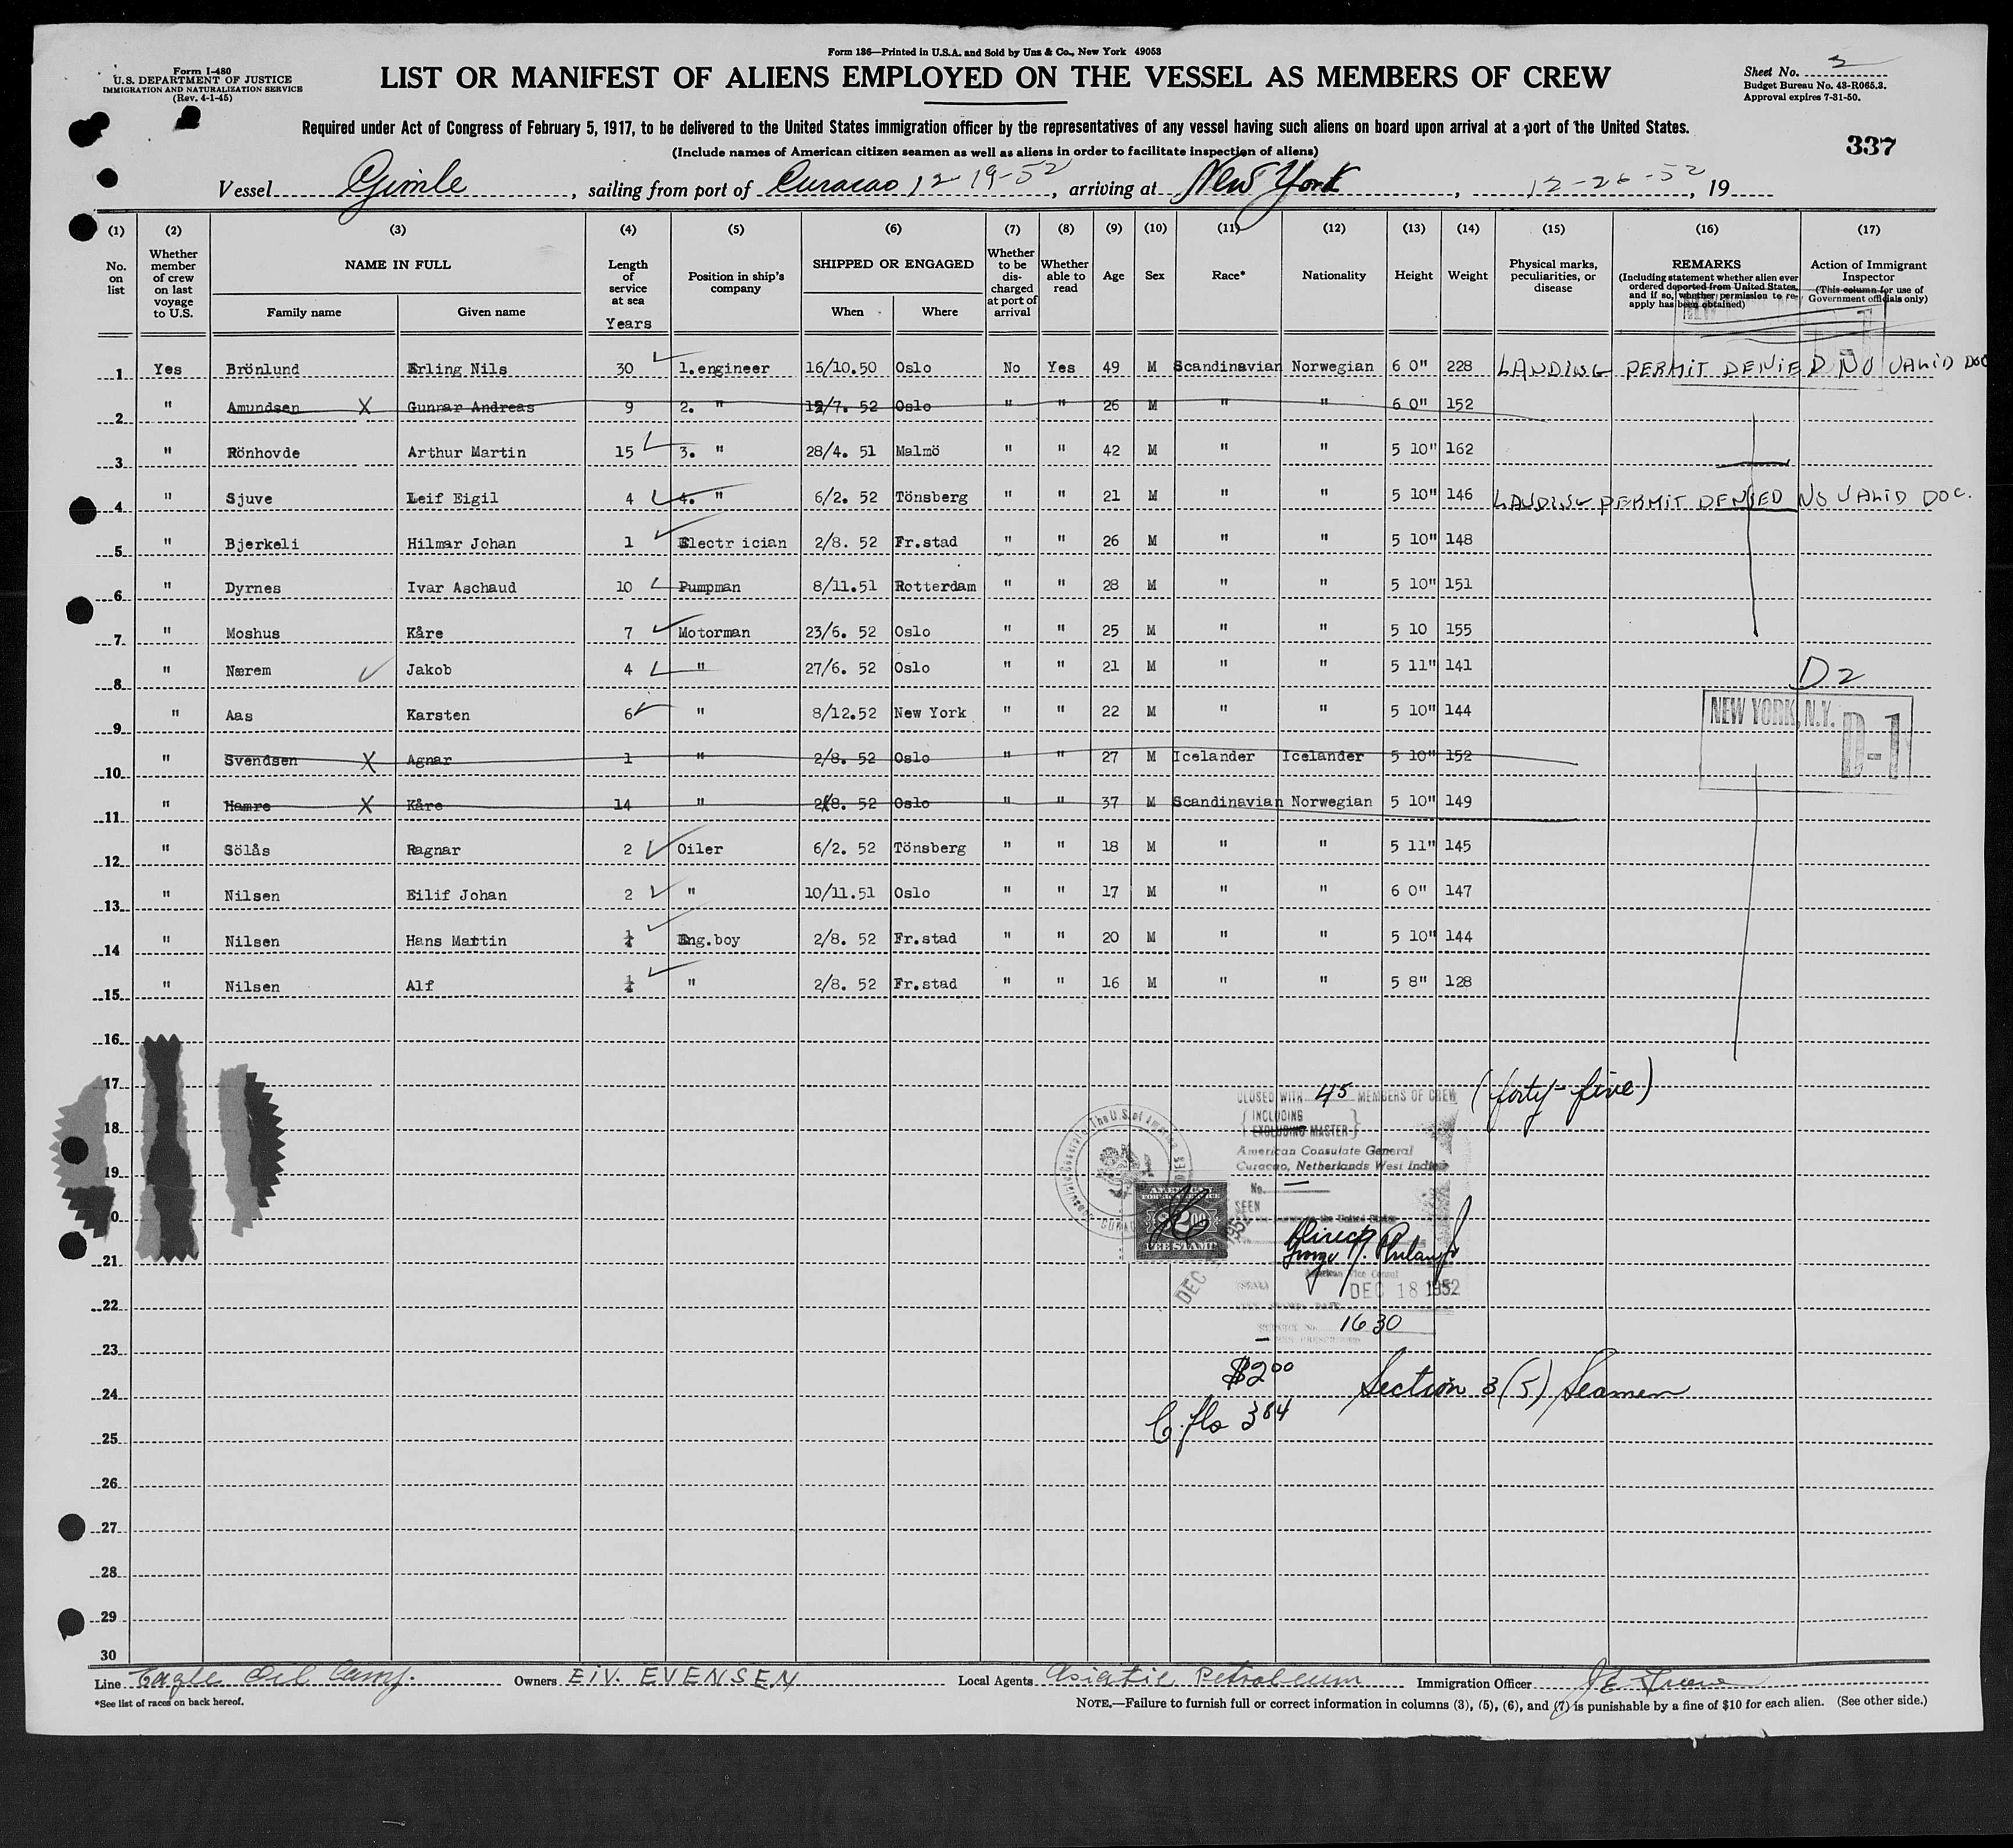 Form 136—Printed in U.S.A. and Sold by Unz & Co., New York 49053
Form I-480
U.S. DEPARTMENT OF JUSTICE
IMMIGRATION AND NATURALIZATION SERVICE
(Rev. 4-1-45)
LIST OR MANIFEST OF ALIENS EMPLOYED ON THE VESSEL AS MEMBERS OF CREW
Sheet No.
Budget Bureau No. 43-R065.3.
Approval expires 7-31-50.
Required under Act of Congress of February 5, 1917, to be delivered to the United States immigration officer by the representatives of any vessel having such aliens on board upon arrival at a port of the United States.
(Include names of American citizen seamen as well as aliens in order to facilitate inspection of aliens)
337
Vessel Gimle, sailing from port of Curacao 12-19-52, arriving at New York, 12-26-52, 19
(1) (2) (3) (4) (5) (6) (7) (8) (9) (10) (11) (12) (13) (14) (15) (16) (17)
No. on list
Whether member of crew on last voyage to U.S.
NAME IN FULL
Family name
Given name
Length of service at sea
Years
Position in ship's company
SHIPPED OR ENGAGED
When
Where
Whether to be discharged at port of arrival
Whether able to read
Age
Sex
Race*
Nationality
Height
Weight
Physical marks, peculiarities, or disease
REMARKS
(Including statement whether alien ever ordered deported from United States, and if so, whether permission to reapply has been obtained)
Action of Immigrant Inspector
(This column for use of Government officials only)
1 Yes Brönlund Erling Nils 30 1.engineer 16/10.50 Oslo No Yes 49 M Scandinavian Norwegian 6 0" 228 LANDING PERMIT DENIED NO VALID DOC
2 " Amundsen X Gunnar Andreas 9 2. " 12/7. 52 Oslo " " 26 M " " 6 0" 152
3 " Rönhovde Arthur Martin 15 3. " 28/4. 51 Malmö " " 42 M " " 5 10" 162
4 " Sjuve Leif Eigil 4 4. " 6/2. 52 Tönsberg " " 21 M " " 5 10" 146 LANDING PERMIT DENIED NO VALID DOC.
5 " Bjerkeli Hilmar Johan 1 Electr ician 2/8. 52 Fr.stad " " 26 M " " 5 10" 148
6 " Dyrnes Ivar Aschaud 10 Pumpman 8/11.51 Rotterdam " " 28 M " " 5 10" 151
7 " Moshus Kåre 7 Motorman 23/6. 52 Oslo " " 25 M " " 5 10 155
8 " Nærem Jakob 4 " 27/6. 52 Oslo " " 21 M " " 5 11" 141 D2
9 " Aas Karsten 6 " 8/12.52 New York " " 22 M " " 5 10" 144
NEW YORK, N.Y. D-1
10 " Svendsen X Agnar 1 " 2/8. 52 Oslo " " 27 M Icelander Icelander 5 10" 152
11 " Hamre X Kåre 14 " 2/8. 52 Oslo " " 37 M Scandinavian Norwegian 5 10" 149
12 " Sölås Ragnar 2 Oiler 6/2. 52 Tönsberg " " 18 M " " 5 11" 145
13 " Nilsen Eilif Johan 2 " 10/11.51 Oslo " " 17 M " " 6 0" 147
14 " Nilsen Hans Martin Eng.boy 2/8. 52 Fr.stad " " 20 M " " 5 10" 144
15 " Nilsen Alf " 2/8. 52 Fr.stad " " 16 M " " 5 8" 128
16
17
CLOSED WITH 45 MEMBERS OF CREW (forty-five)
{INCLUDING
EXCLUDING MASTER}
18
American Consulate General
Curacao, Netherlands West Indies
19
No.
SEEN
0
AMERICAN FOREIGN SERVICE
$2.00
FEE STAMP
Direct
21
American Vice Consul
DEC 18 1952
DEC
22
1630
23
$2.00
24
Section 3 (5) Seamen
C. fls 3.84
25
26
27
28
29
30
Line Eagle Oil Comp. Owners EIV. EVENSEN Local Agents Asiatic Petroleum Immigration Officer
*See list of races on back hereof.
NOTE.—Failure to furnish full or correct information in columns (3), (5), (6), and (7) is punishable by a fine of $10 for each alien. (See other side.)